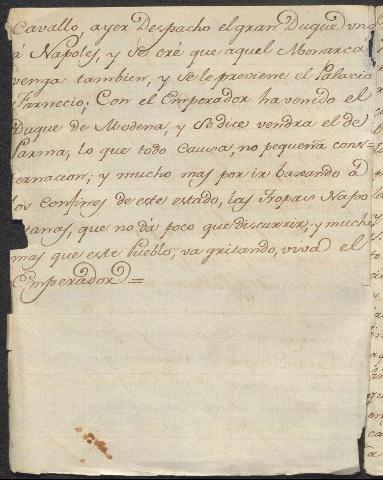 Cavallo, ayer Despacho el gran Duque uno
á Napoles, y se cré que aquel Monarca
venga tambien, y se le previene el Palacio
Farnecio; Con el Emperador ha venido el
Duque de Modena, y Se dice vendra el de
Parma, lo que todo Causa, no pequeña cons-
ternacion; y mucho mas por ir baxando á
los Confines de este estado, las Tropas Napo
litanas, que no dá poco que discurrir; y mucho
mas que este Pueblo, va gritando, viva el
Emperador =